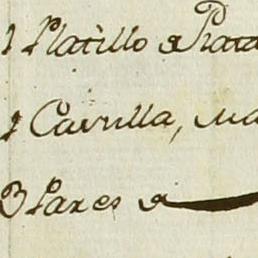 1 Platillo de Plata
1 Caxilla, Ma
3 Pares de